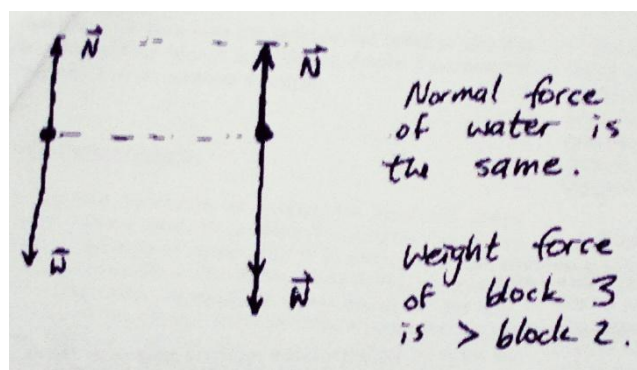 N
N
Normal force
of water is
the same.
W
W
Weight force
of block 3
is > block 2.